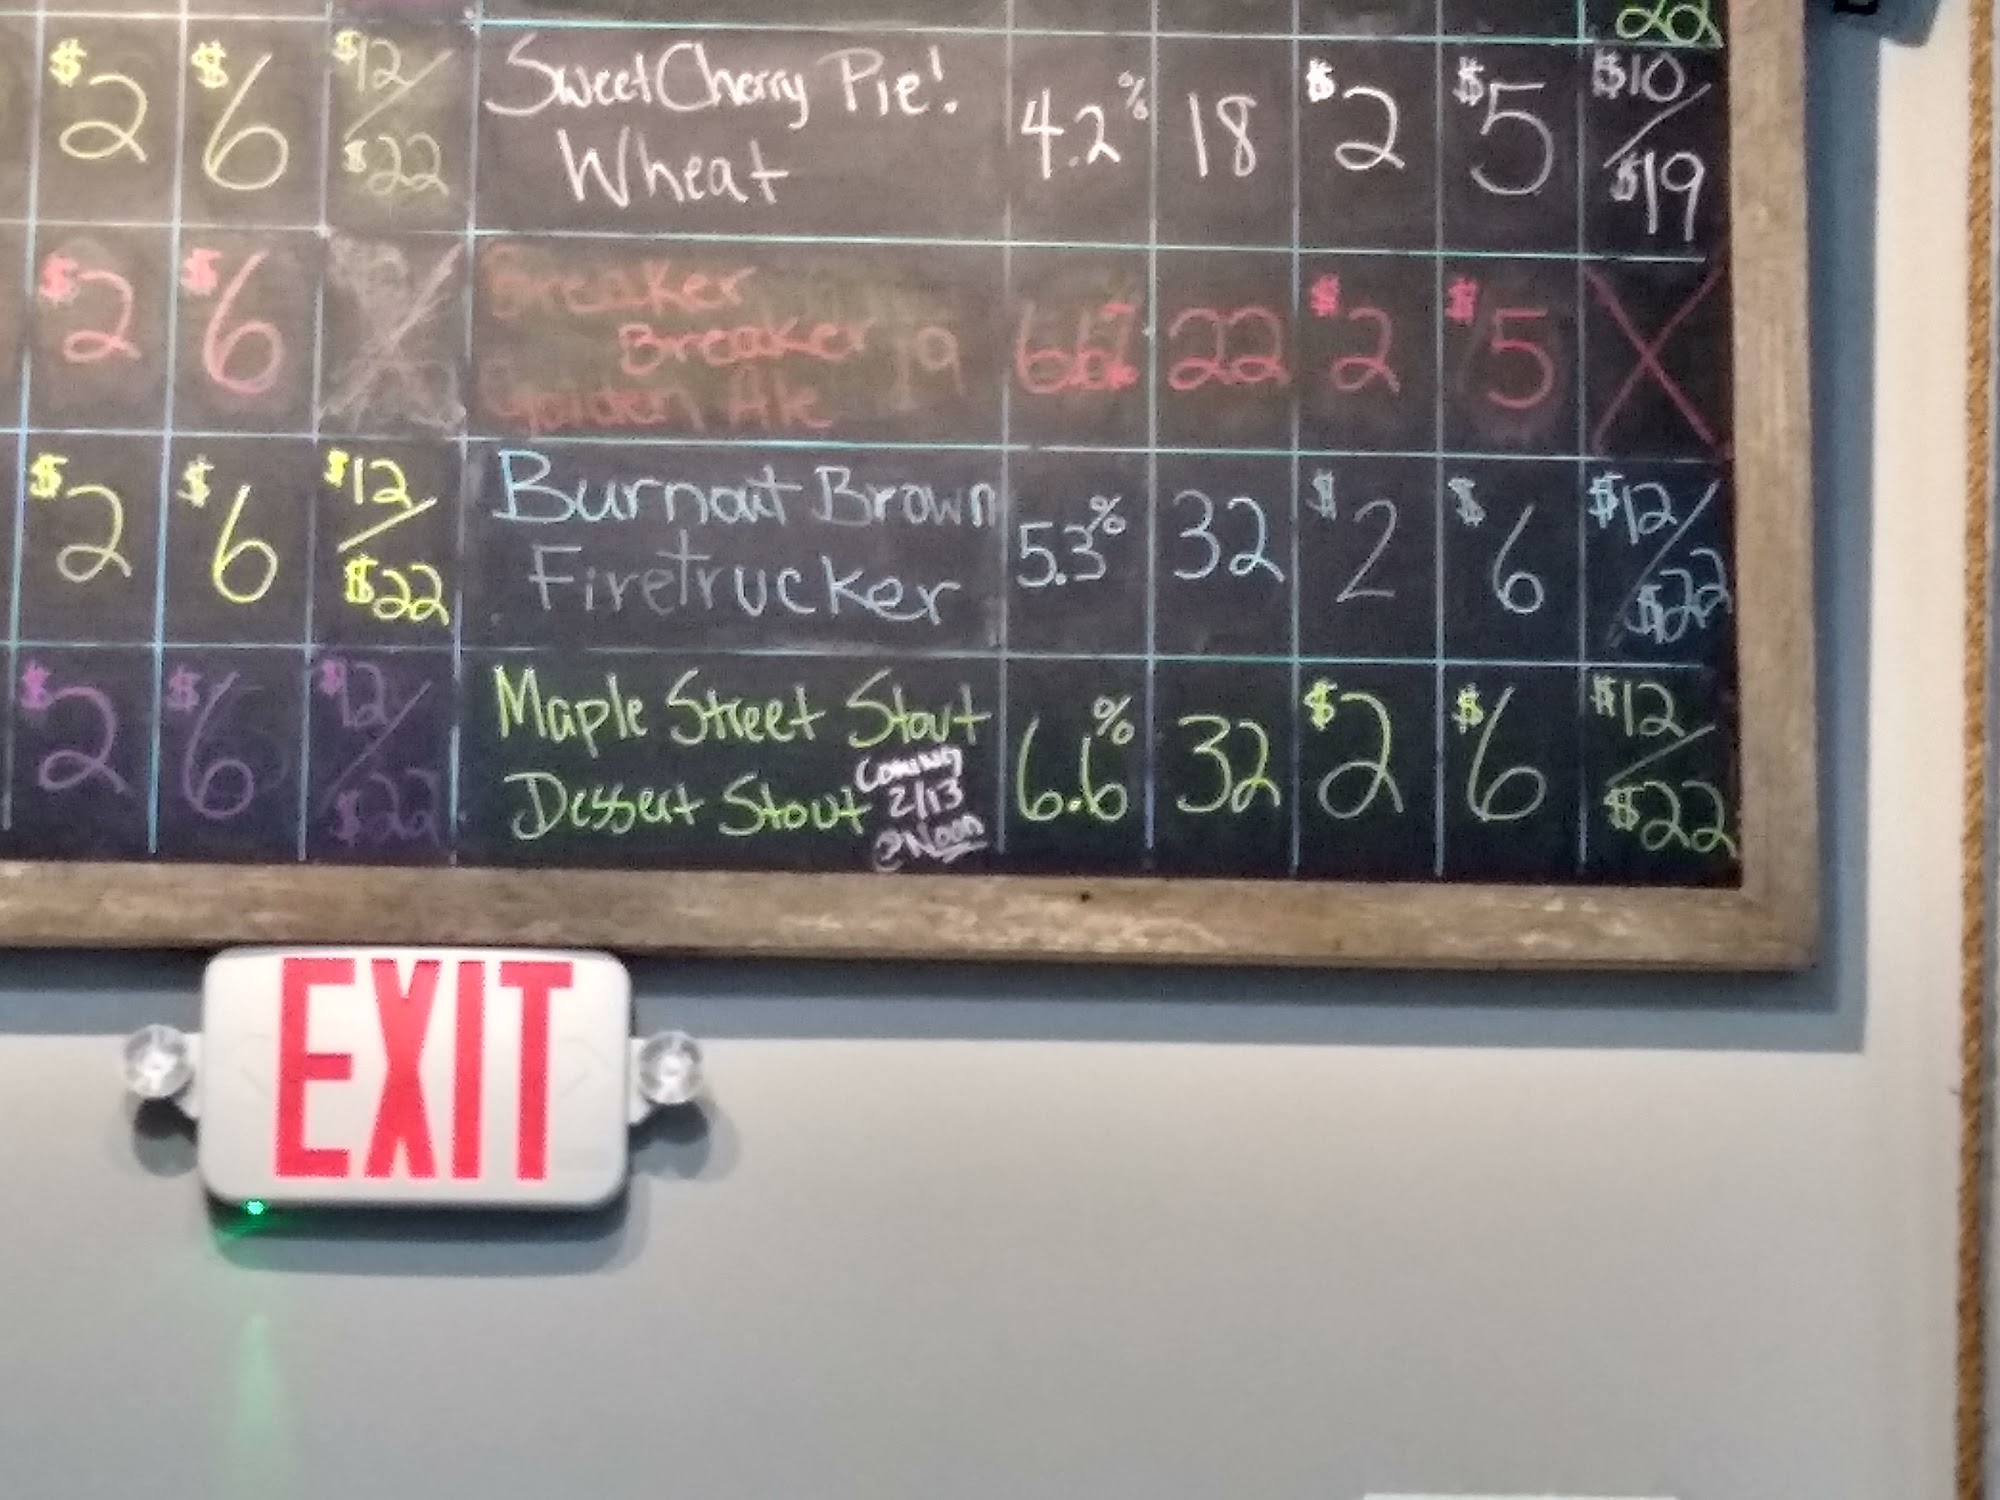 22
$2 $6 $12/ Sweet Cherry Pie! 4.2% 18 $2 $5 $10/
$22 Wheat $19
$2 $6 Breaker 6.6% 22 $2 $5 X
Breaker 19
Golden Ale
$2 $6 $12/ Burnout Brown 5.3% 32 $2 $6 $12/
$22 Firetrucker $22
$2 $6 $12/ Maple Street Stout 6.6% 32 $2 $6 $12/
$22 Dessert Stout $22
Coming
2/13
@Noon
EXIT